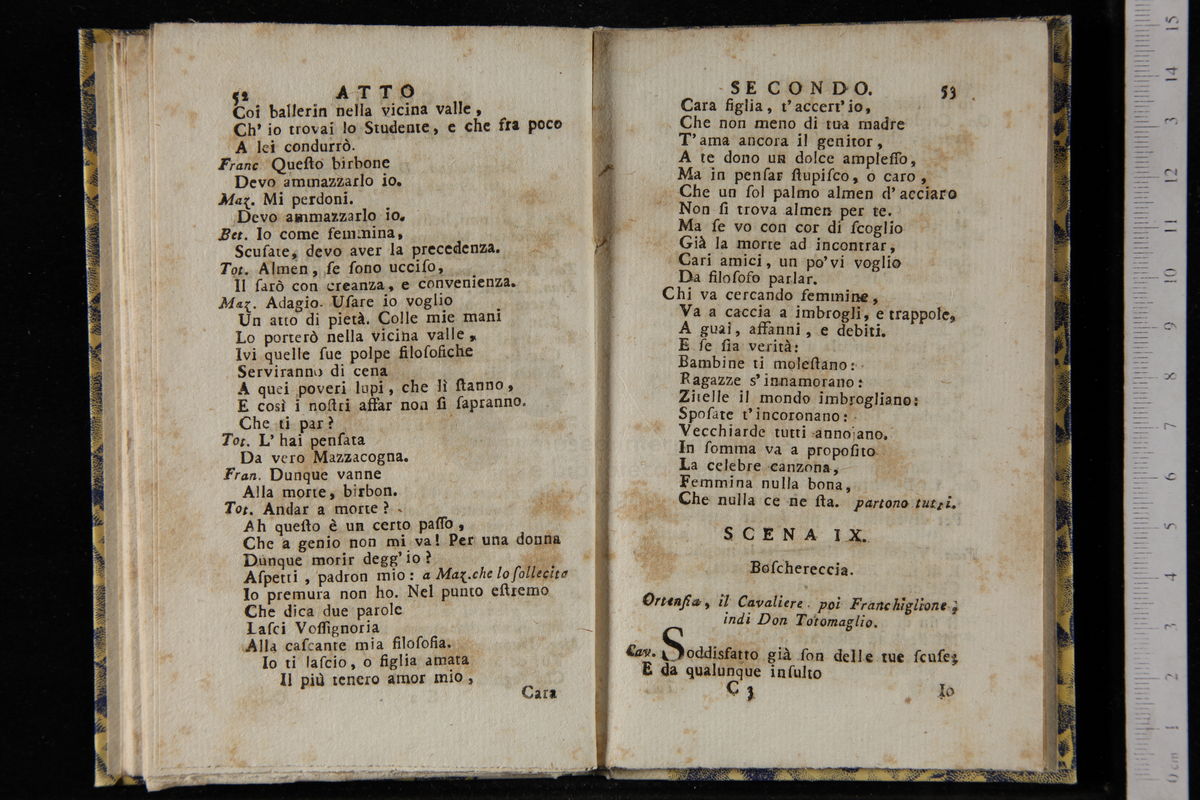 52 ATTO
Coi ballerin nella vicina valle,
Ch' io trovai lo Studente, e che fra poco
A lei condurrò.
Franc Queſto birbone
Devo ammazzarlo io.
Maz. Mi perdoni.
Devo ammazzarlo io.
Bet. Io come femmina,
Scuſate, devo aver la precedenza.
Tot. Almen, ſe ſono ucciſo,
Il ſarò con creanza, e convenienza.
Maz. Adagio. Uſare io voglio
Un atto di pietà. Colle mie mani
Lo porterò nella vicina valle,
Ivi quelle ſue polpe filoſofiche
Serviranno di cena
A quei poveri lupi, che lì ſtanno,
E così i noſtri affar non ſi ſapranno.
Che ti par?
Tot. L' hai penſata
Da vero Mazzacogna.
Fran. Dunque vanne
Alla morte, birbon.
Tot. Andar a morte?
Ah queſto è un certo paſſo,
Che a genio non mi va! Per una donna
Dunque morir degg' io?
Aſpetti, padron mio: a Maz. che lo ſollecita
Io premura non ho. Nel punto eſtremo
Che dica due parole
Laſci Voſſignoria
Alla caſcante mia filoſofia.
Io ti laſcio, o figlia amata
Il più tenero amor mio,
Cara
SECONDO. 53
Cara figlia, t'accert' io,
Che non meno di tua madre
T'ama ancora il genitor,
A te dono un dolce ampleſſo,
Ma in penſar ſtupiſco, o caro,
Che un ſol palmo almen d'acciaro
Non ſi trova almen per te.
Ma ſe vo con cor di ſcoglio
Già la morte ad incontrar,
Cari amici, un po' vi voglio
Da filoſofo parlar.
Chi va cercando femmine,
Va a caccia a imbrogli, e trappole,
A guai, affanni, e debiti.
E ſe ſia verità:
Bambine ti moleſtano:
Ragazze s'innamorano:
Zitelle il mondo imbrogliano:
Spoſate t'incoronano:
Vecchiarde tutti annojano.
In ſomma va a propoſito
La celebre canzona,
Femmina nulla bona,
Che nulla ce ne ſta. partono tutti.
SCENA IX.
Boſchereccia.
Ortenſia, il Cavaliere. poi Franchiglione;
indi Don Totomaglio.
Cav. Soddisfatto già ſon delle tue ſcuſe;
E da qualunque inſulto
C 3 Io
0 cm 1 2 3 4 5 6 7 8 9 10 11 12 3 14 15